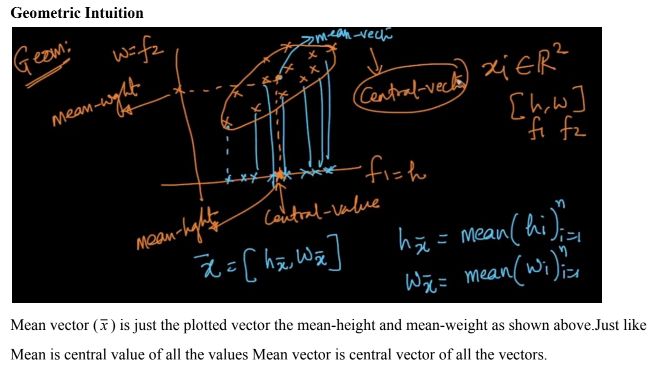 Geometric Intuition
Geom:
w=f2
mean-vect
mean-wght
Central-vect
xi ∈ R²
[h,w]
f1 f2
f1=h
mean-hght
Central-value
x̄ = [hx̄, Wx̄]
hx̄ = mean(hi)ⁿi=1
Wx̄ = mean(wi)ⁿi=1
Mean vector (x̄) is just the plotted vector the mean-height and mean-weight as shown above.Just like
Mean is central value of all the values Mean vector is central vector of all the vectors.